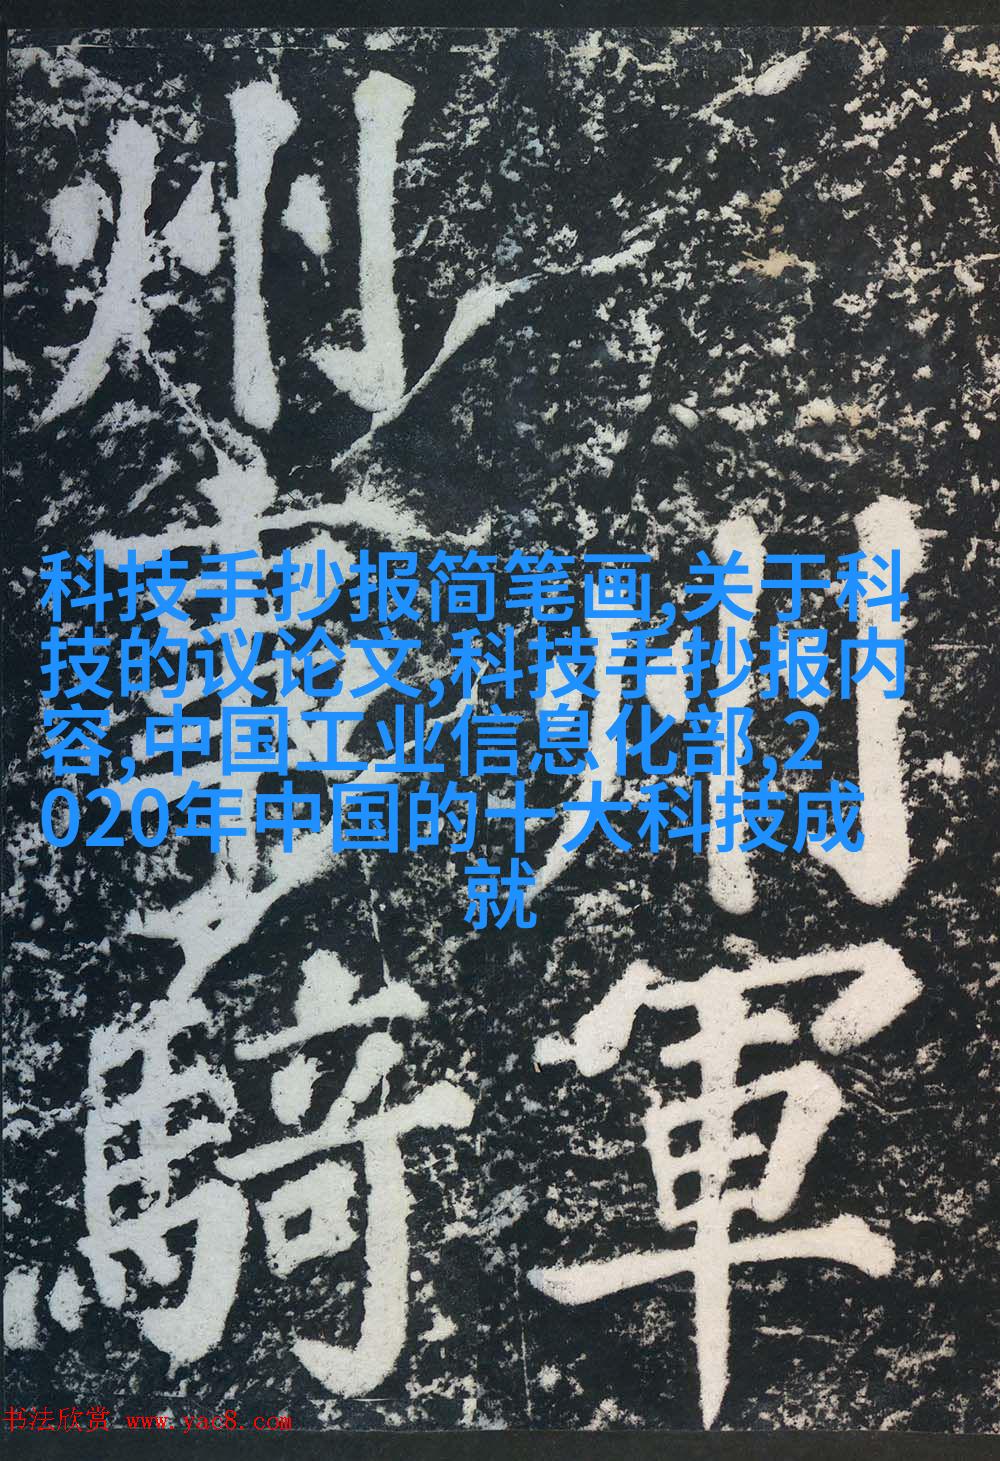 科技手抄报简笔画,关于科
技的议论文,科技手抄报内
容,中国工业信息化部,2
020年中国的十大科技成
就
川軍
州
騎
书法欣赏 www.yac8.com